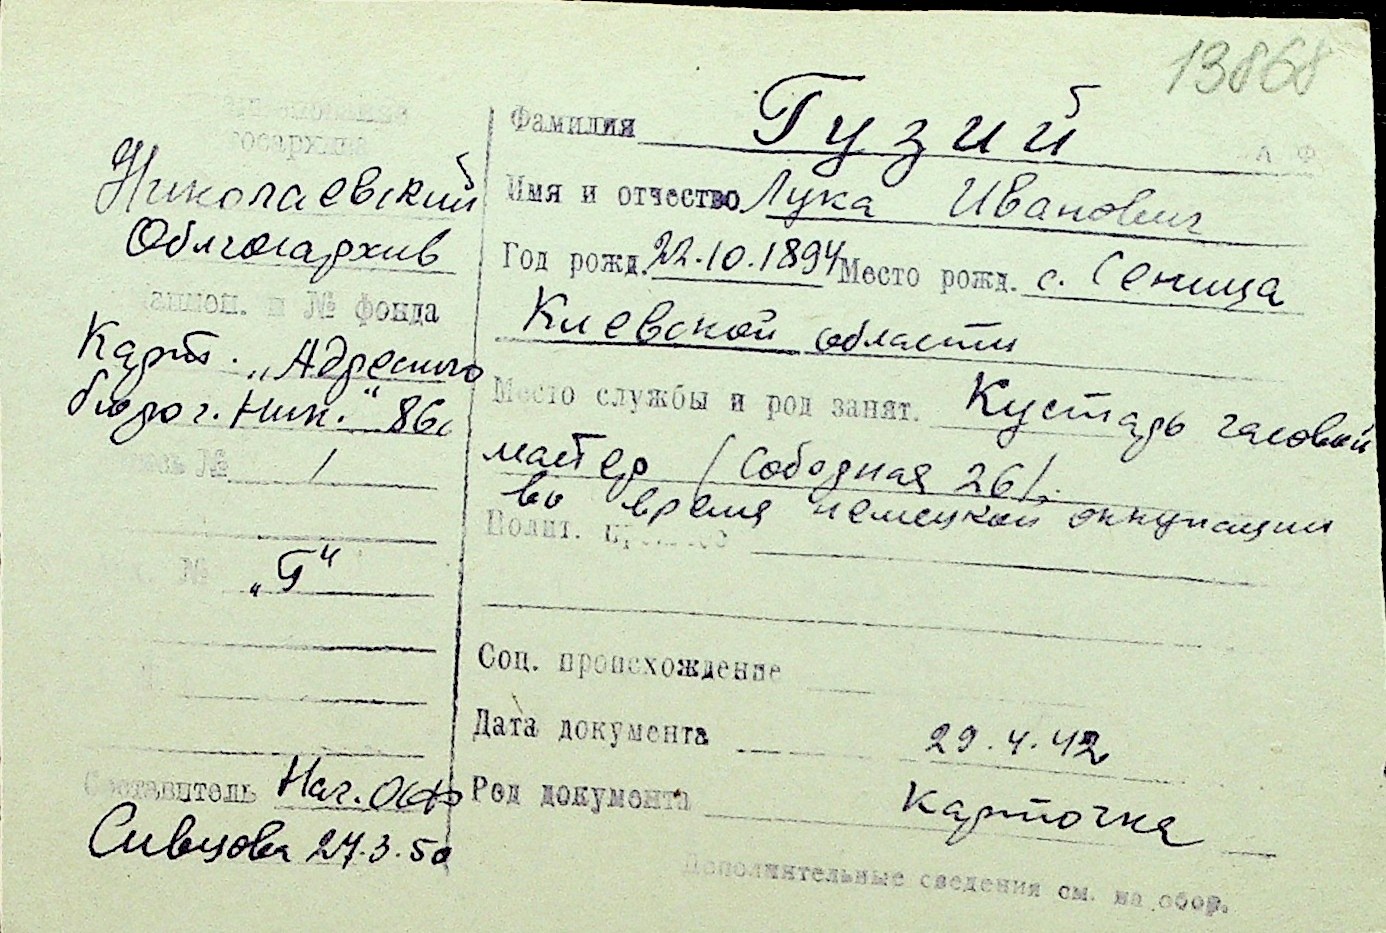 13868
госархива
Николаевский
Облгосархив
№ фонда
Карт. „Адресного
бюро г. Ник." 86с
№ 1
№ „Г"
Составитель Нач. ОСФ
Сивцова 27.3.50
Фамилия Гузий
Имя и отчество Лука Иванович
Год рожд. 22.10.1894 Место рожд. с. Сеница
Киевской области
Место службы и род занят. Кустарь часовой
мастер (Сободная 26).
во время немецкой оккупации
Полит.
Соц. происхождение
Дата документа 29.4.42
Род документа карточка
Дополнительные сведения см. на обор.